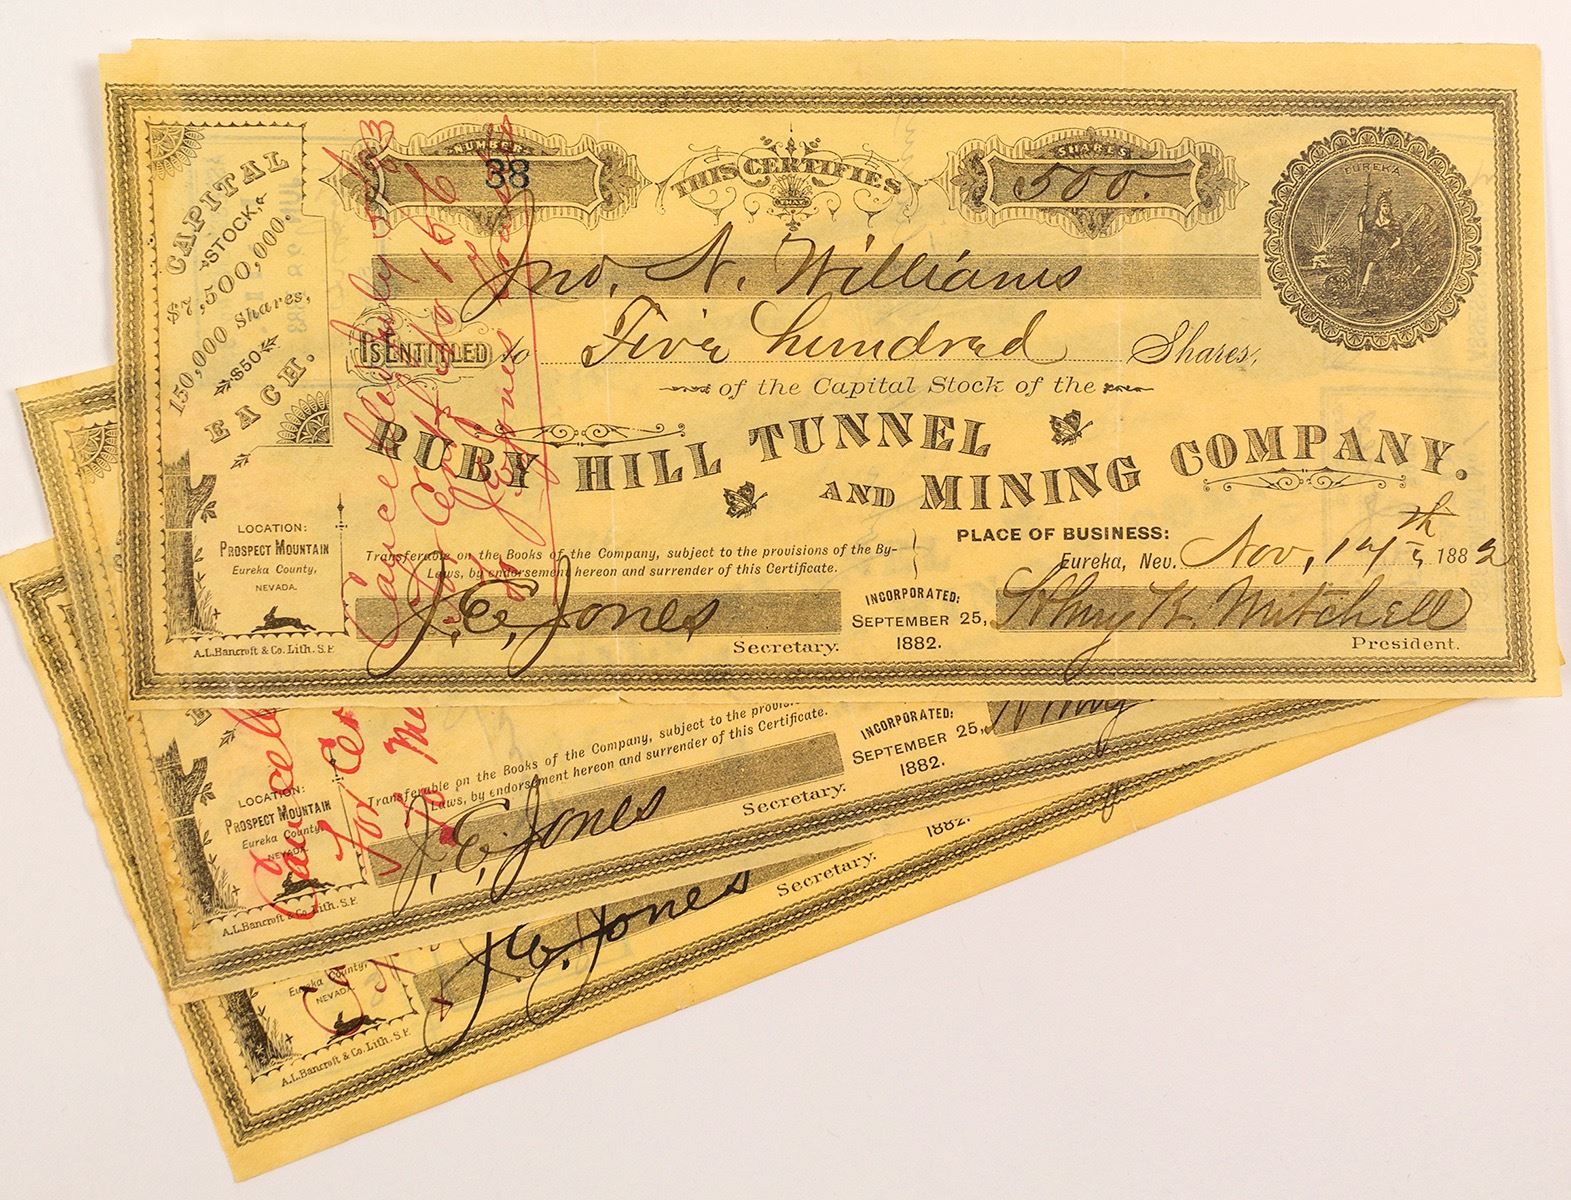 CAPITAL
STOCK,
$7,500,000.
150,000 Shares,
$50
EACH.
NUMBER
38
THIS CERTIFIES
THAT
SHARES
500.
EUREKA
Jno. N. Williams
IS ENTITLED to Five hundred Shares,
of the Capital Stock of the
RUBY HILL TUNNEL
AND MINING COMPANY.
LOCATION:
PROSPECT MOUNTAIN
Eureka County,
NEVADA.
A.L.Bancroft & Co. Lith. S.F.
Transferable on the Books of the Company, subject to the provisions of the By-
Laws, by endorsement hereon and surrender of this Certificate.
PLACE OF BUSINESS:
Eureka, Nev. Nov, 14th, 1882
J. E. Jones
Secretary.
INCORPORATED:
SEPTEMBER 25,
1882.
Mitchell
President.
Cancelled July
For Certf No 156
J E Jones
LOCATION:
PROSPECT MOUNTAIN
Eureka County,
NEVADA.
A.L.Bancroft & Co. Lith. S.F.
Cancell
For Cer
Transferable on the Books of the Company, subject to the provis
Laws, by endorsement hereon and surrender of this Certificate.
J. E. Jones
Secretary.
INCORPORATED:
SEPTEMBER 25,
1882.
Eureka County,
NEVADA.
A.L.Bancroft & Co. Lith. S.F.
J. E. Jones
Secretary.
1882.